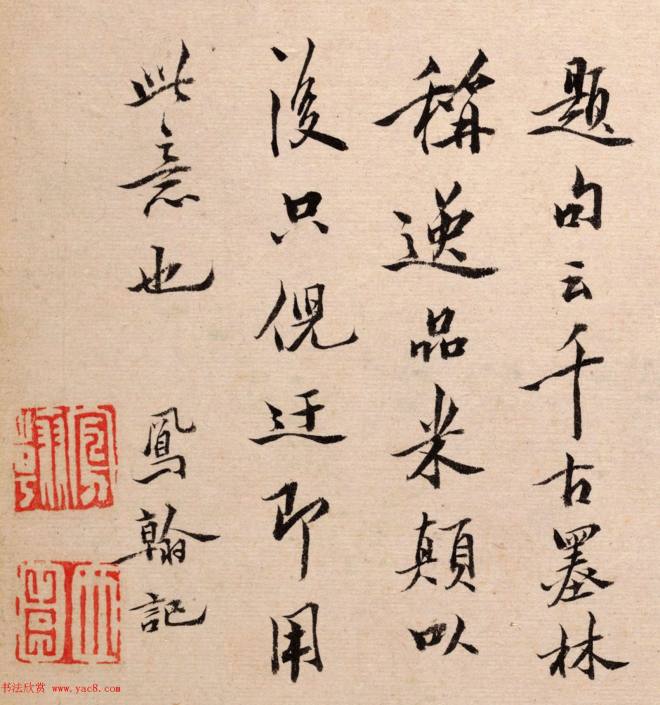 题句云千古墨林
稱逸品米顛以
後只倪迂即用
此意也 鳳翰記
书法欣赏 www.yac8.com